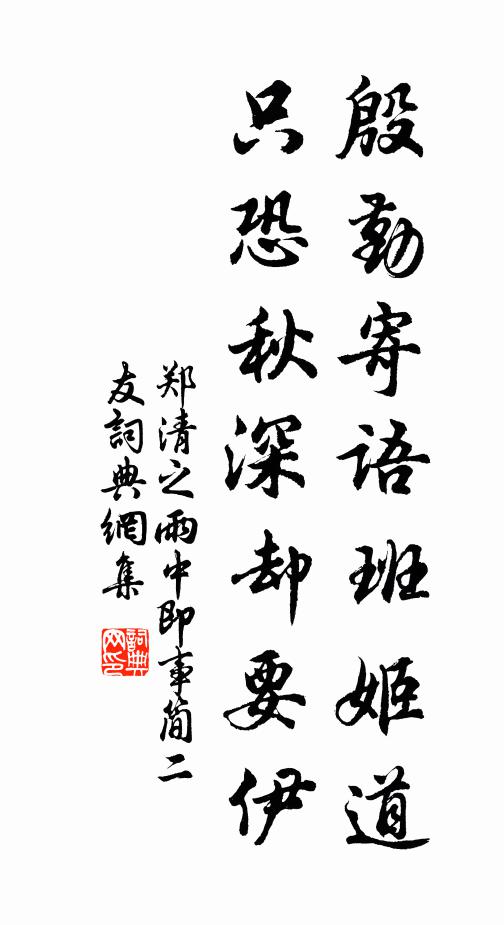 殷勤寄语班姬道
只恐秋深却要伊
郑清之雨中即事简二
友詞典網集
詞典网印